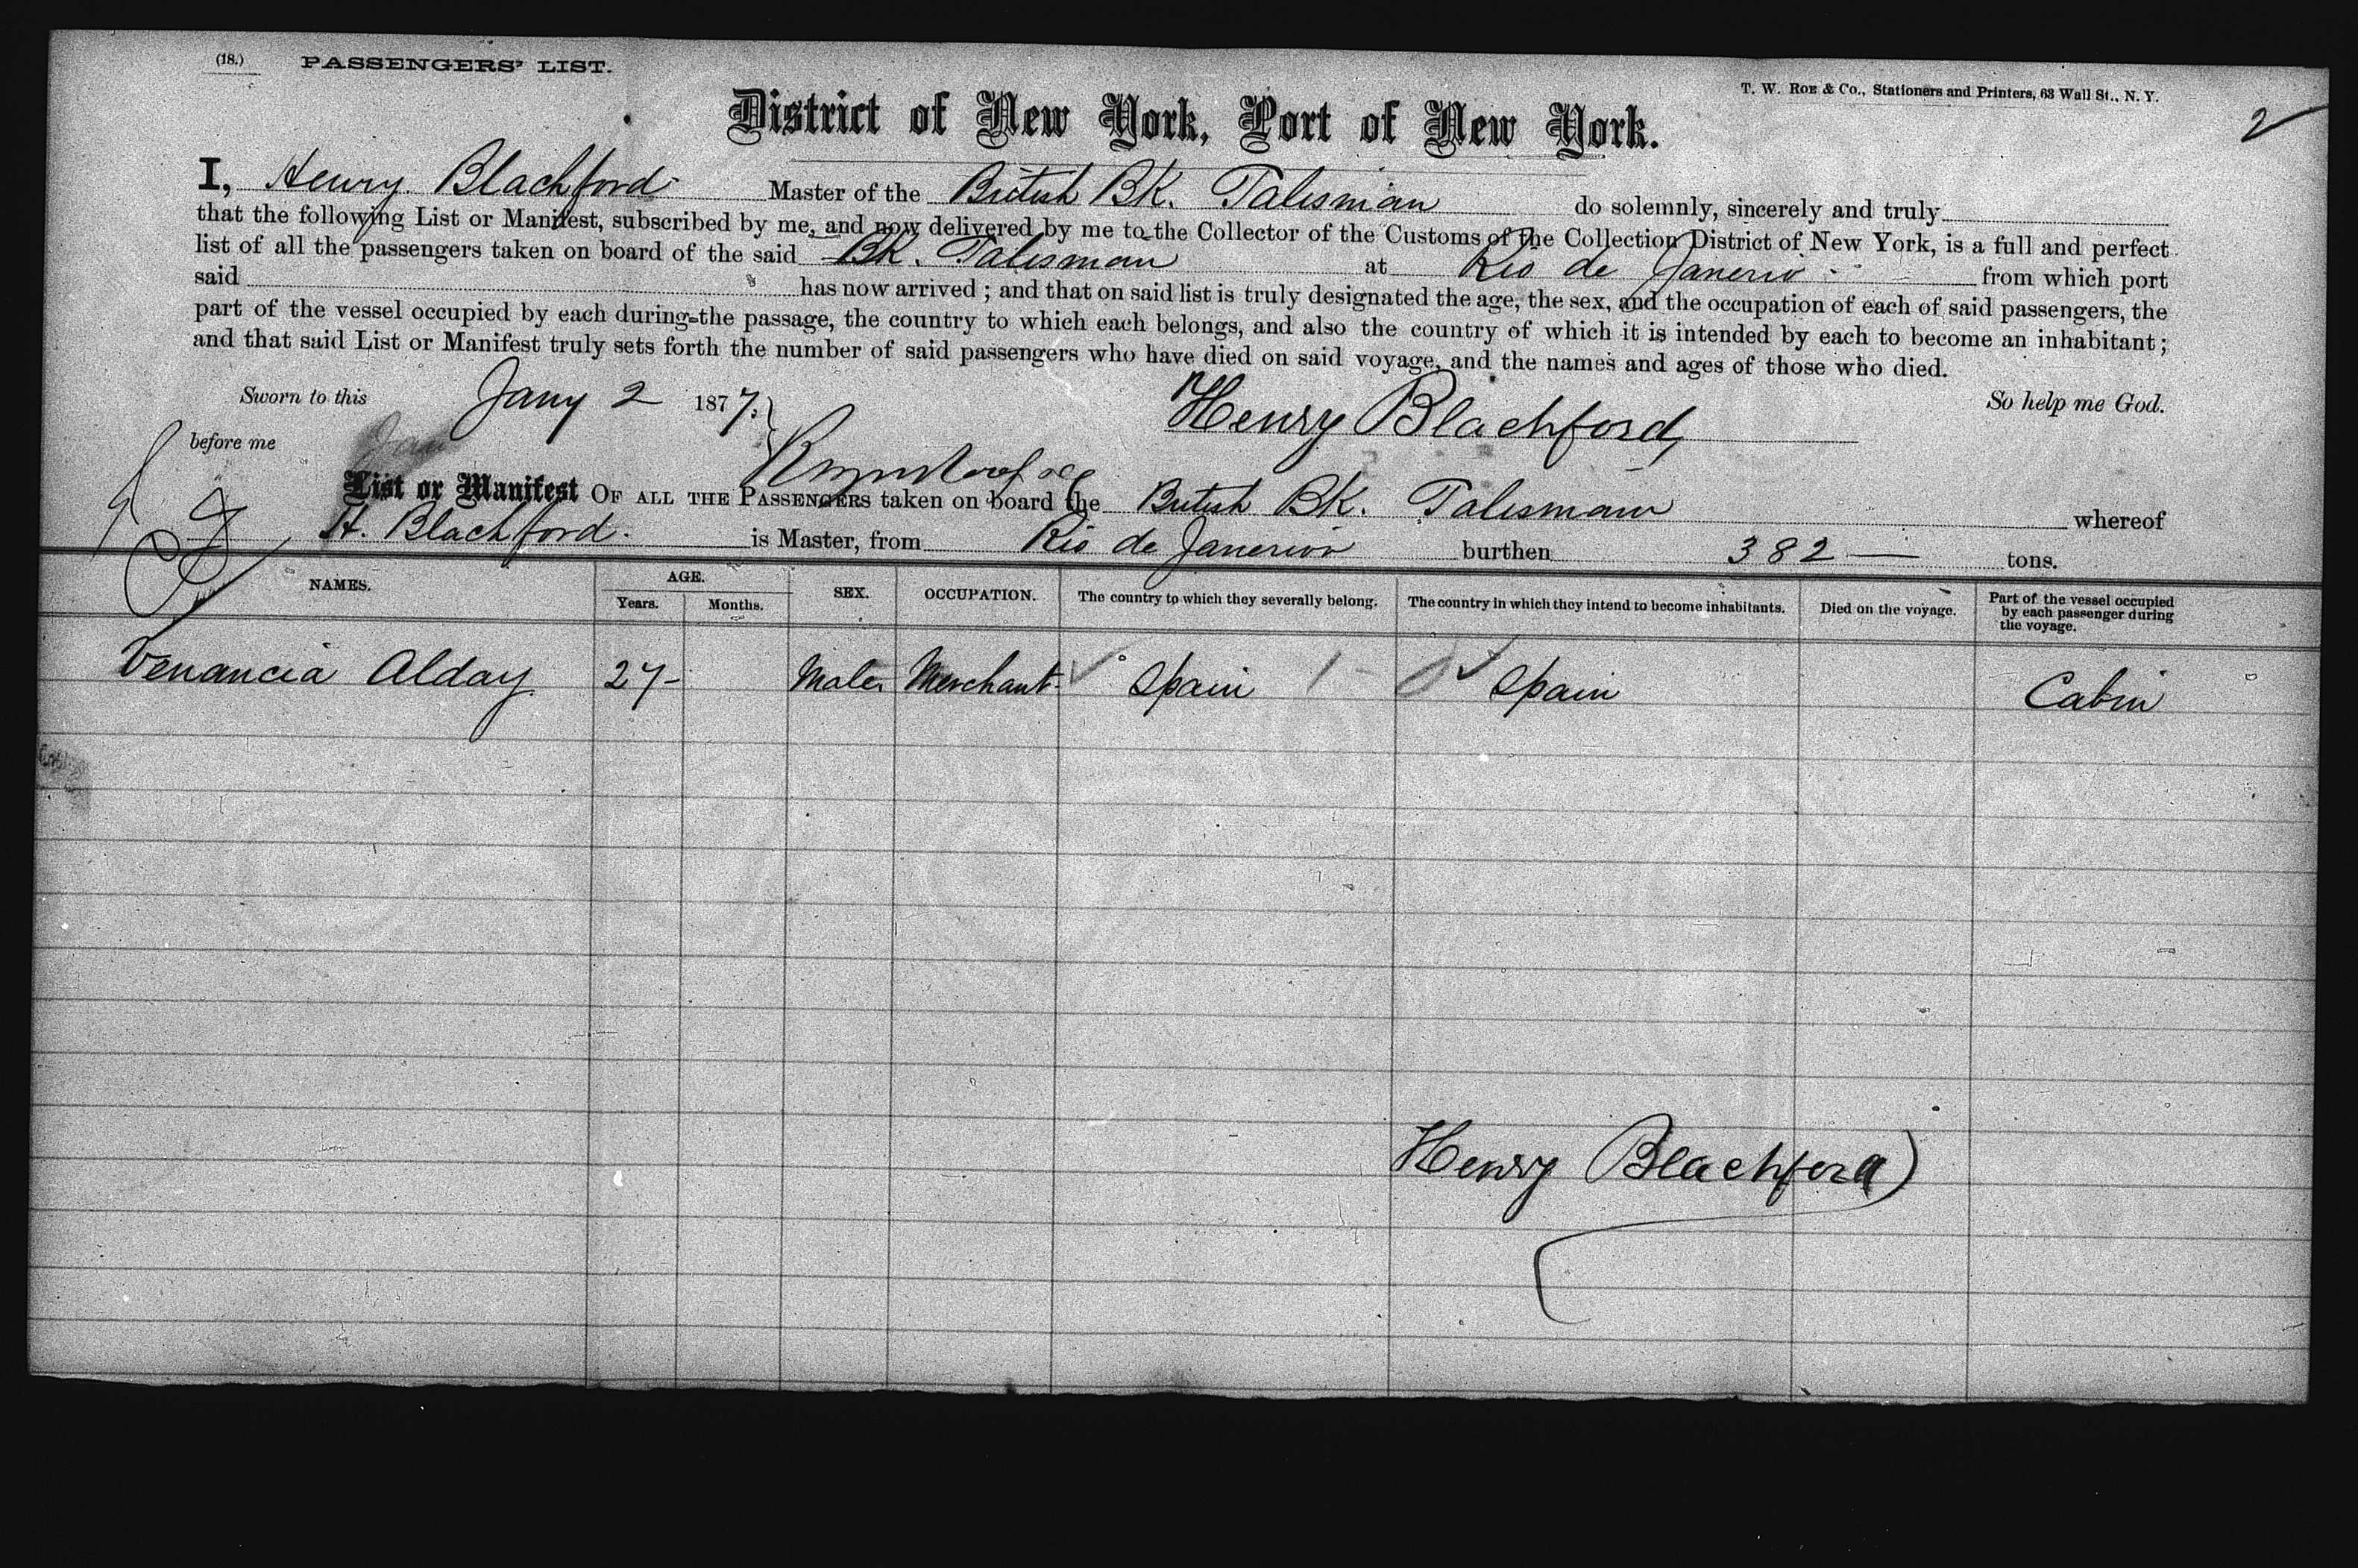 (18.) PASSENGERS' LIST.
T. W. ROE & Co., Stationers and Printers, 63 Wall St., N. Y.
2
District of New York, Port of New York.
I, Henry Blachford Master of the British BK. Talisman do solemnly, sincerely and truly
that the following List or Manifest, subscribed by me, and now delivered by me to the Collector of the Customs of the Collection District of New York, is a full and perfect
list of all the passengers taken on board of the said BK. Talisman at Rio de Janerio from which port
said has now arrived; and that on said list is truly designated the age, the sex, and the occupation of each of said passengers, the
part of the vessel occupied by each during the passage, the country to which each belongs, and also the country of which it is intended by each to become an inhabitant;
and that said List or Manifest truly sets forth the number of said passengers who have died on said voyage, and the names and ages of those who died.
Sworn to this Jany 2 1877. Henry Blachford So help me God.
before me
List or Manifest OF ALL THE PASSENGERS taken on board the British BK. Talisman whereof
H. Blachford. is Master, from Rio de Janerio burthen 382 — tons.
NAMES. AGE. SEX. OCCUPATION. The country to which they severally belong. The country in which they intend to become inhabitants. Died on the voyage. Part of the vessel occupied by each passenger during the voyage.
Years. Months.
Venancia Alday 27 - Male Merchant Spain 1 - Spain Cabin
Henry Blachford